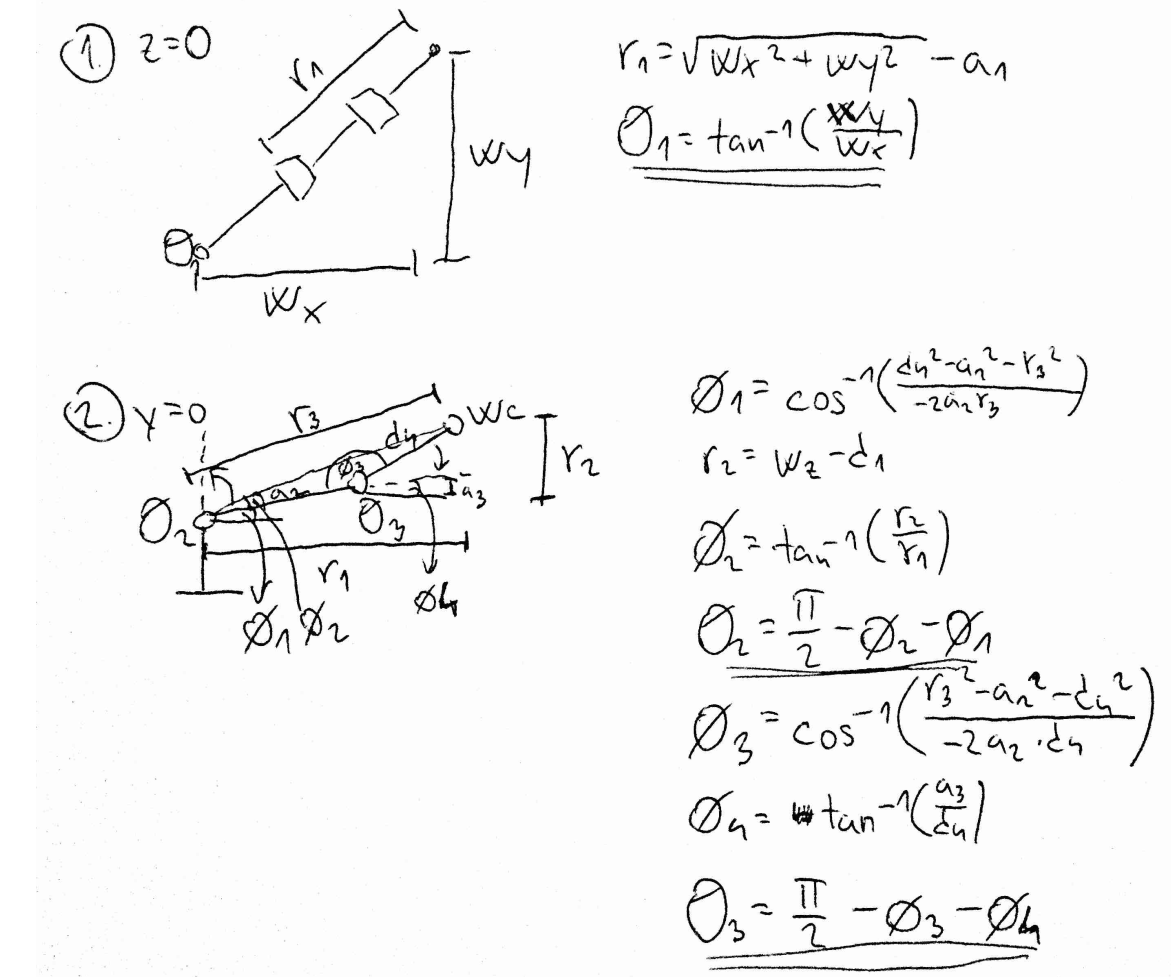 1. z=0
r1
wy
θ1
wx
r1=√wx²+wy² -a1
θ1=tan⁻¹(wy/wx)
2. y=0
r3
wc
d4
ø3
r2
a2
a3
θ2
θ3
r1
ø4
ø1 ø2
ø1=cos⁻¹(d4²-a2²-r3²/-2a2r3)
r2=wz-d1
ø2=tan⁻¹(r2/r1)
θ2=π/2-ø2-ø1
ø3=cos⁻¹(r3²-a2²-d4²/-2a2·d4)
ø4=tan⁻¹(a3/d4)
θ3=π/2-ø3-ø4